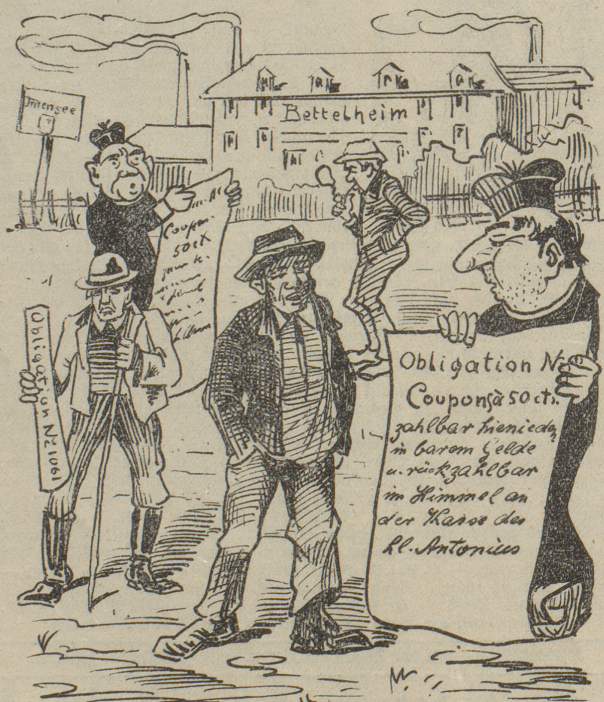 Immensee
Bettelheim
Coupon
50 ct
Obligation No 1061
Obligation No
Coupons à 50 cts.
zahlbar hienieden
in barem Gelde
u. rückzahlbar
im Himmel an
der Kasse des
hl. Antonius